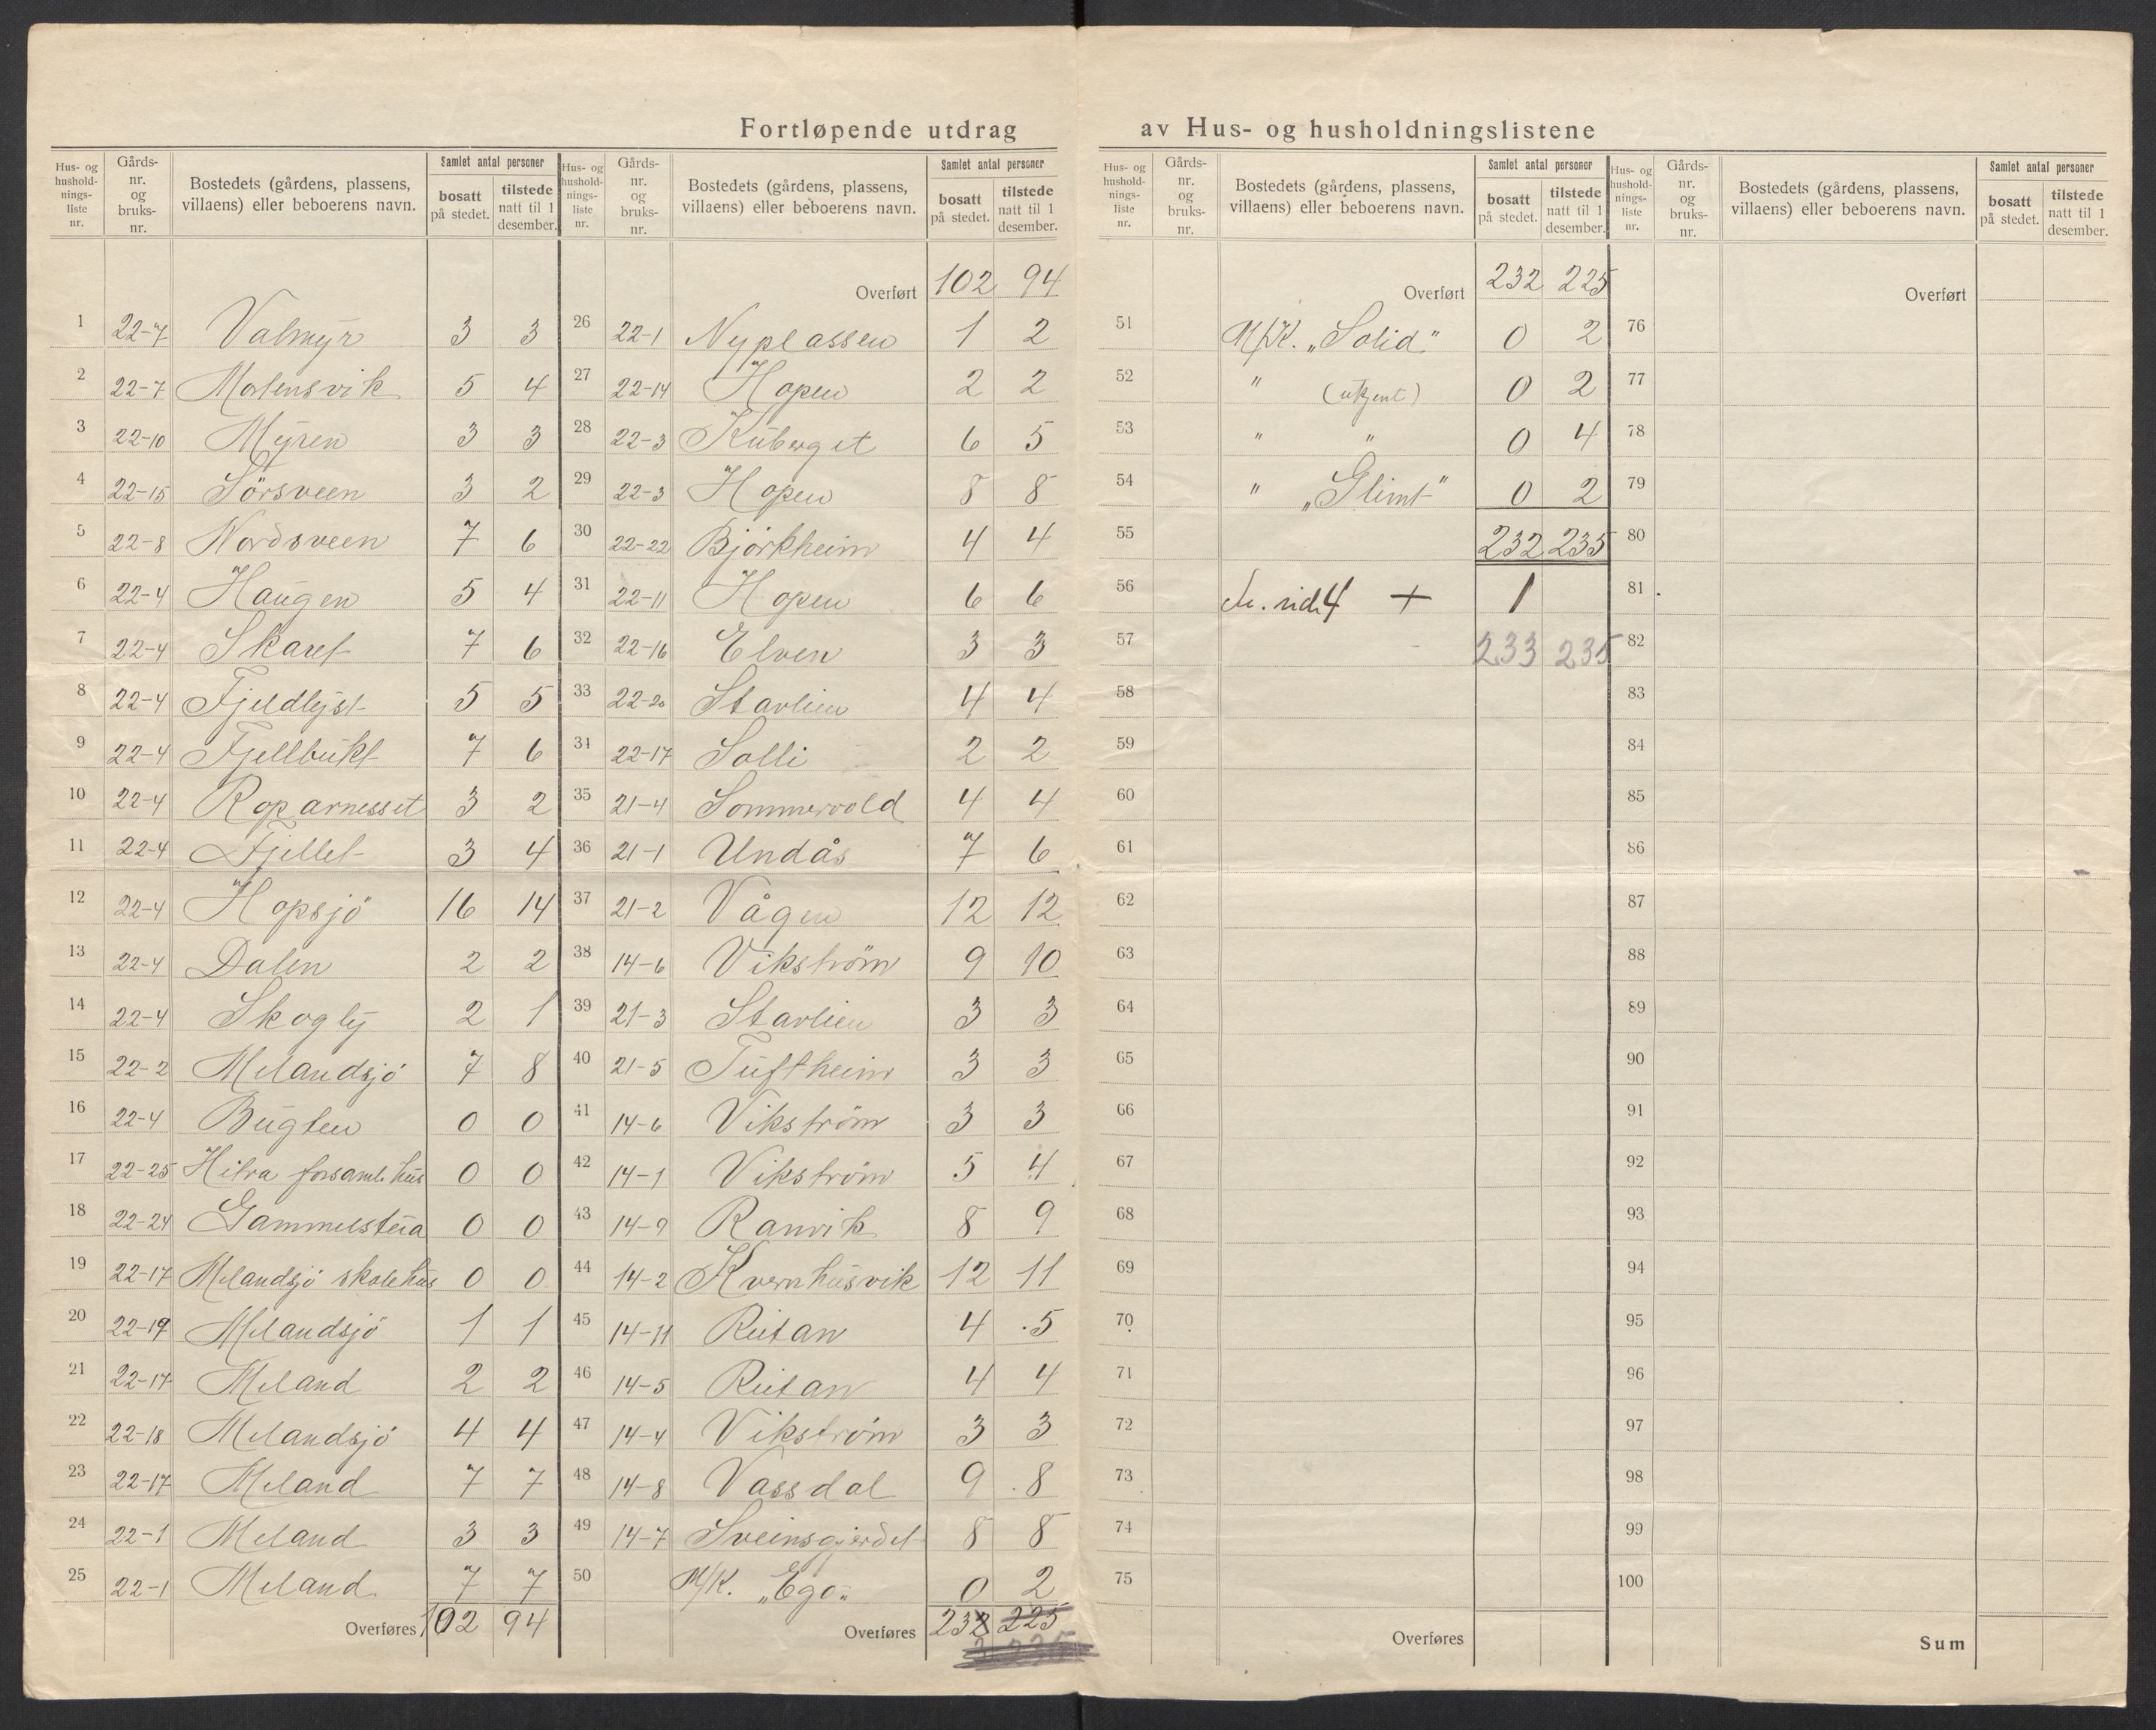 Fortløpende utdrag av Hus- og husholdningslistene
Hus- og husholdnings-liste nr. | Gårds-nr. og bruks-nr. | Bostedets (gårdens, plassens, villaens) eller beboerens navn. | Samlet antal personer bosatt på stedet. | tilstede natt til 1 desember.
1 22-7 Valmyr 3 3
2 22-7 Mortensvik 5 4
3 22-10 Myren 3 3
4 22-15 Sörsveen 3 2
5 22-8 Nordsveen 7 6
6 22-4 Haugen 5 4
7 22-4 Skaret 7 6
8 22-4 Fjeldlyst 5 5
9 22-4 Fjellbukt 7 6
10 22-4 Roparnesset 3 2
11 22-4 Fjellet 3 4
12 22-4 Hopsjö 16 14
13 22-4 Dalen 2 2
14 22-4 Skogly 2 1
15 22-2 Melandsjö 7 8
16 22-4 Bugten 0 0
17 22-25 Hitra forsaml. hus 0 0
18 22-24 Gammelstua 0 0
19 22-17 Melandsjö skolehus 0 0
20 22-19 Melandsjö 1 1
21 22-17 Meland 2 2
22 22-18 Melandsjö 4 4
23 22-17 Meland 7 7
24 22-1 Meland 3 3
25 22-1 Meland 7 7
Overføres 102 94
Hus- og husholdnings-liste nr. | Gårds-nr. og bruks-nr. | Bostedets (gårdens, plassens, villaens) eller beboerens navn. | Samlet antal personer bosatt på stedet. | tilstede natt til 1 desember.
Overført 102 94
26 22-1 Nyplassen 1 2
27 22-14 Hopen 2 2
28 22-3 Kuberget 6 5
29 22-3 Hopen 8 8
30 22-22 Björkheim 4 4
31 22-11 Hopen 6 6
32 22-16 Elven 3 3
33 22-20 Starlien 4 4
34 22-17 Solli 2 2
35 21-4 Sommervold 4 4
36 21-1 Undås 7 6
37 21-2 Vågen 12 12
38 14-6 Vikström 9 10
39 21-3 Starlien 3 3
40 21-5 Tuftheim 3 3
41 14-6 Vikström 3 3
42 14-1 Vikström 5 4
43 14-9 Ranvik 8 9
44 14-2 Kvernhusvik 12 11
45 14-11 Rutan 4 5
46 14-5 Rutan 4 4
47 14-4 Vikström 3 3
48 14-8 Vassdal 9 8
49 14-7 Sveinsgjerdet 8 8
50 M/K. „Ego„ 0 2
Overføres 232 225
Hus- og husholdnings-liste nr. | Gårds-nr. og bruks-nr. | Bostedets (gårdens, plassens, villaens) eller beboerens navn. | Samlet antal personer bosatt på stedet. | tilstede natt til 1 desember.
Overført 232 225
51 M/K. „Solid" 0 2
52 " (ukjent) 0 2
53 " " 0 4
54 " „Glimt" 0 2
55 232 235
56 4 + 1
57 233 235
58
59
60
61
62
63
64
65
66
67
68
69
70
71
72
73
74
75
Overføres
Hus- og husholdnings-liste nr. | Gårds-nr. og bruks-nr. | Bostedets (gårdens, plassens, villaens) eller beboerens navn. | Samlet antal personer bosatt på stedet. | tilstede natt til 1 desember.
Overført
76
77
78
79
80
81
82
83
84
85
86
87
88
89
90
91
92
93
94
95
96
97
98
99
100
Sum